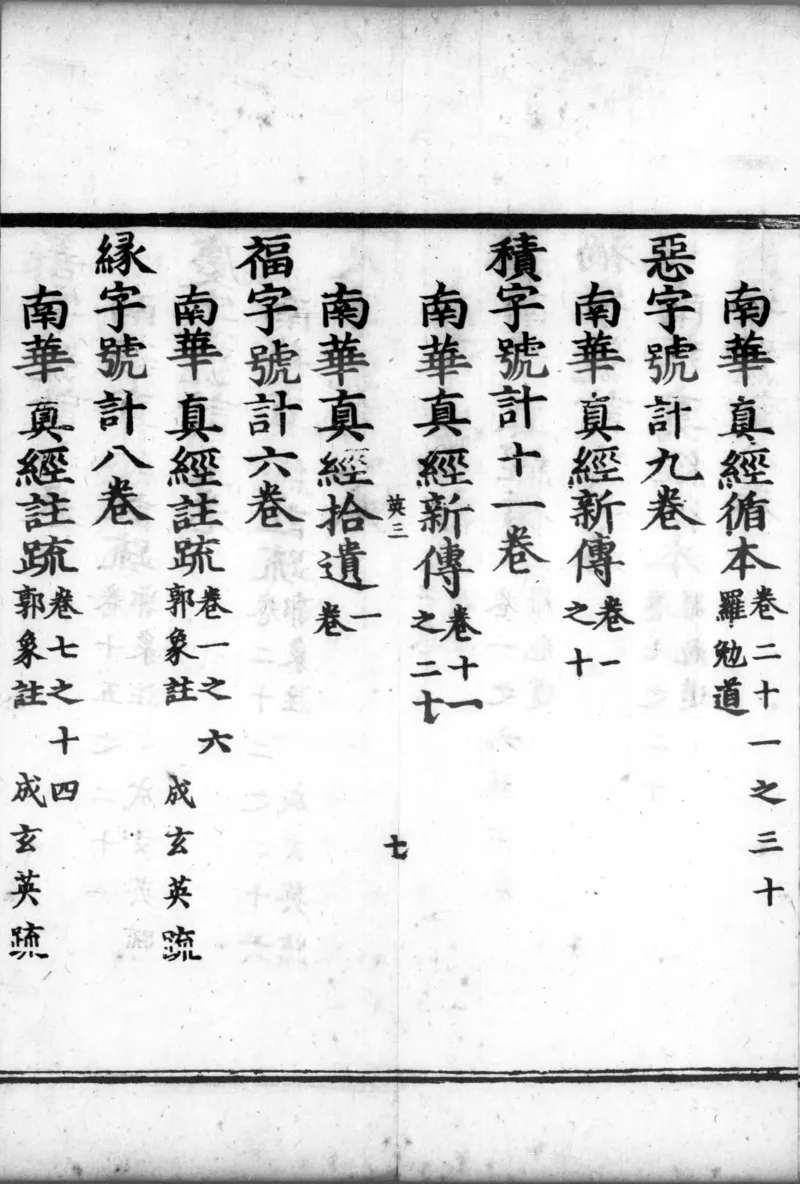 南華真經循本卷二十一之三十
羅勉道
惡字號計九卷
南華真經新傳卷一
之十
積字號計十一卷
南華真經新傳卷十一
之二十
英三
七
南華真經拾遺一
卷
福字號計六卷
南華真經註疏卷一之六
郭象註 成玄英疏
緣字號計八卷
南華真經註疏卷七之十四
郭象註 成玄英疏